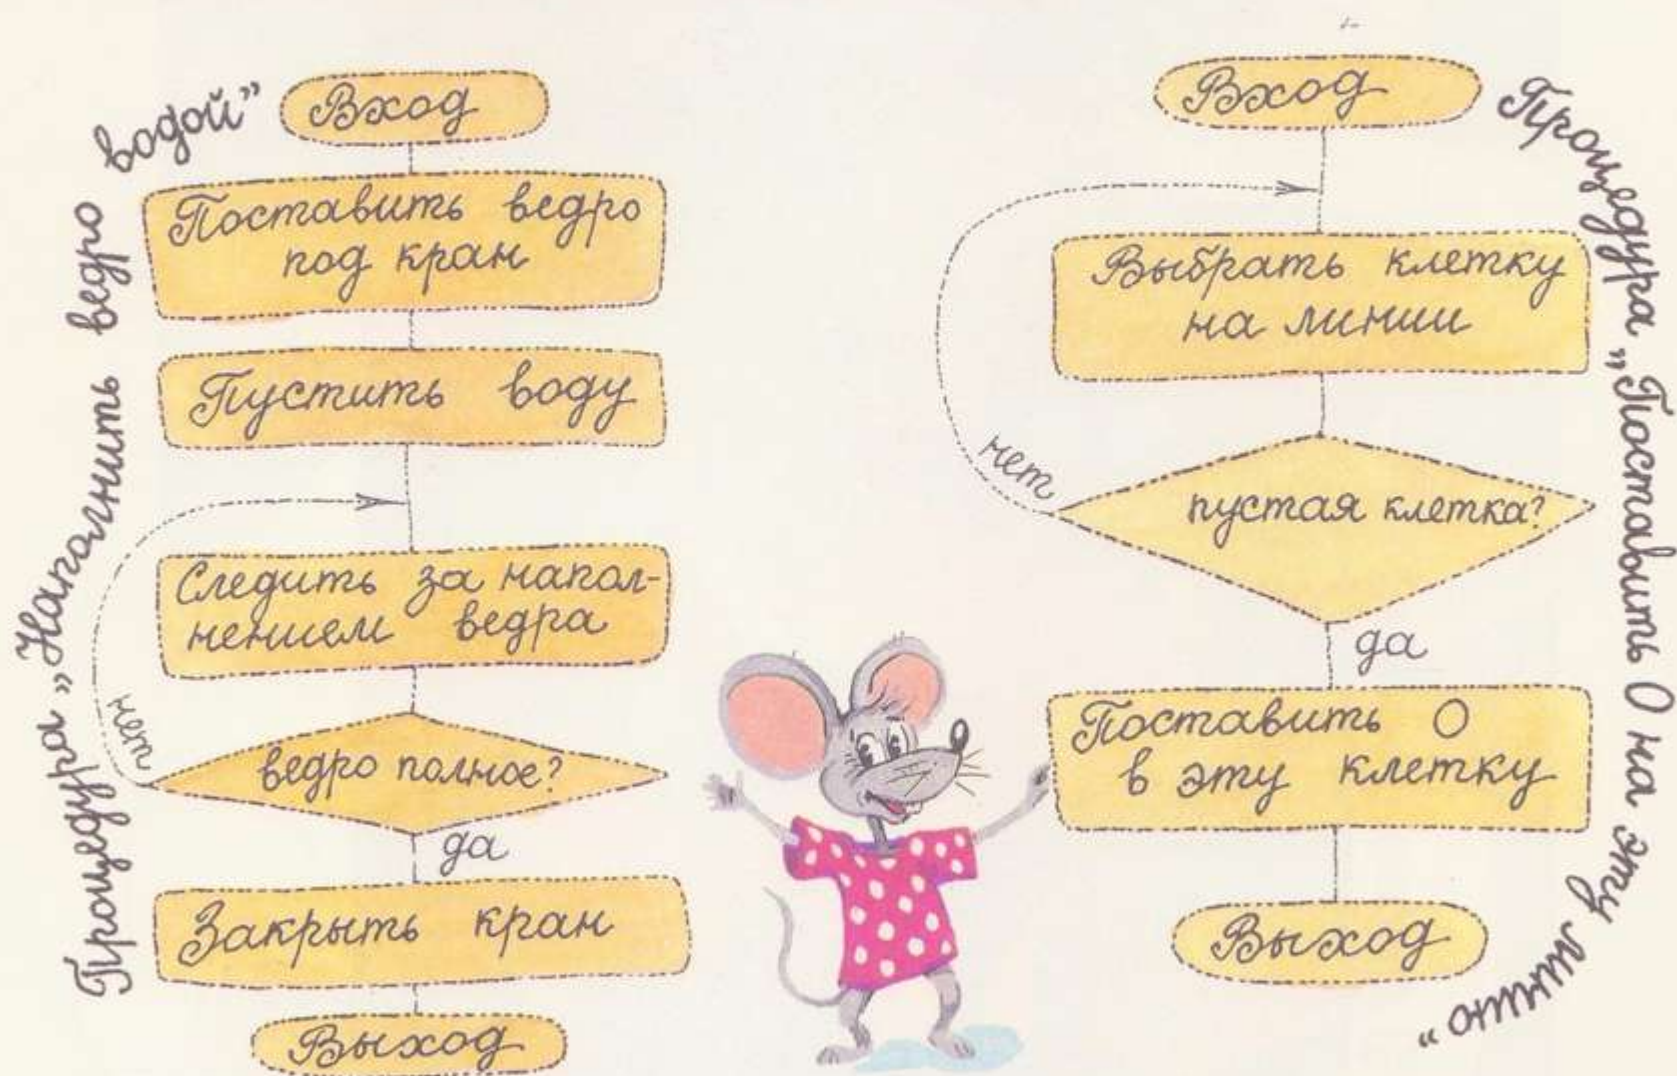 Процедура „Наполнить ведро водой”
Вход
Поставить ведро
под кран
Пустить воду
Следить за напол-
нением ведра
нет
ведро полное?
да
Закрыть кран
Выход
Процедура „Поставить О на эту линию”
Вход
Выбрать клетку
на линии
нет
пустая клетка?
да
Поставить О
в эту клетку
Выход